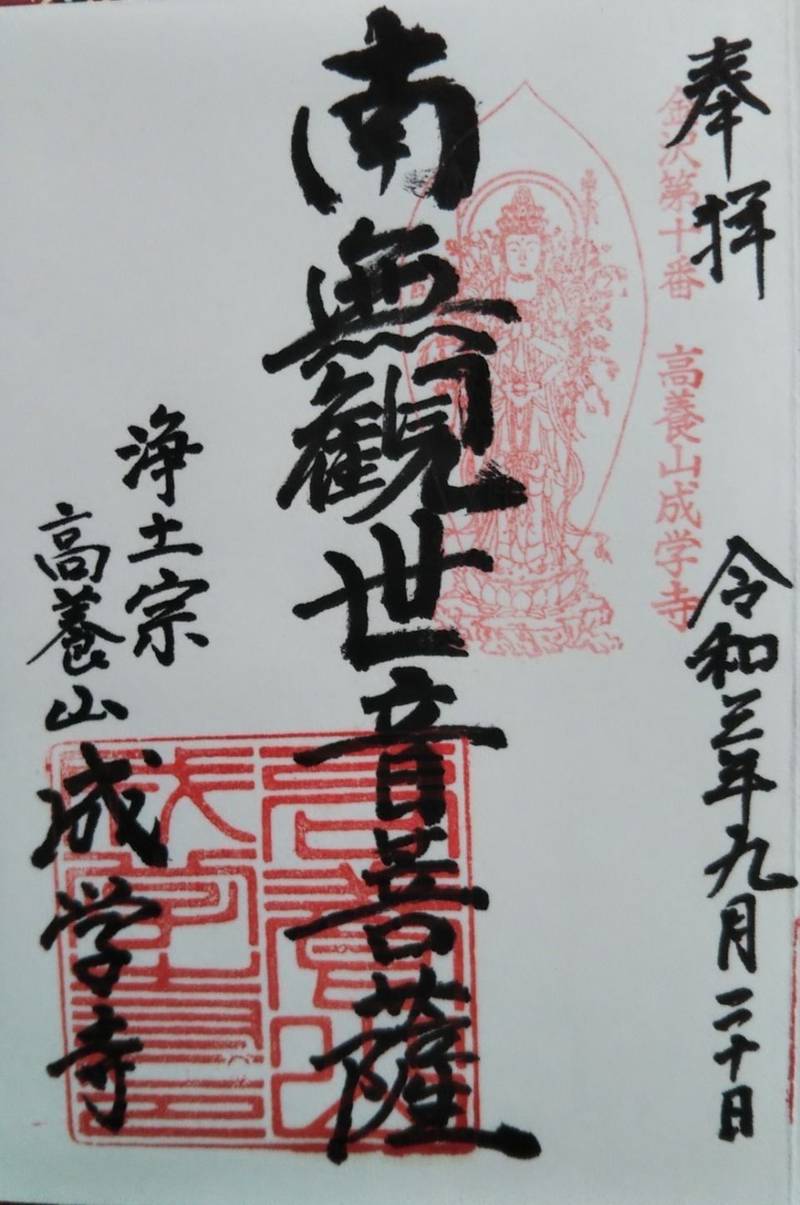 奉拝
金沢第十番 高養山成学寺
令和三年九月二十日
南無観世音菩薩
浄土宗
高養山
成学寺